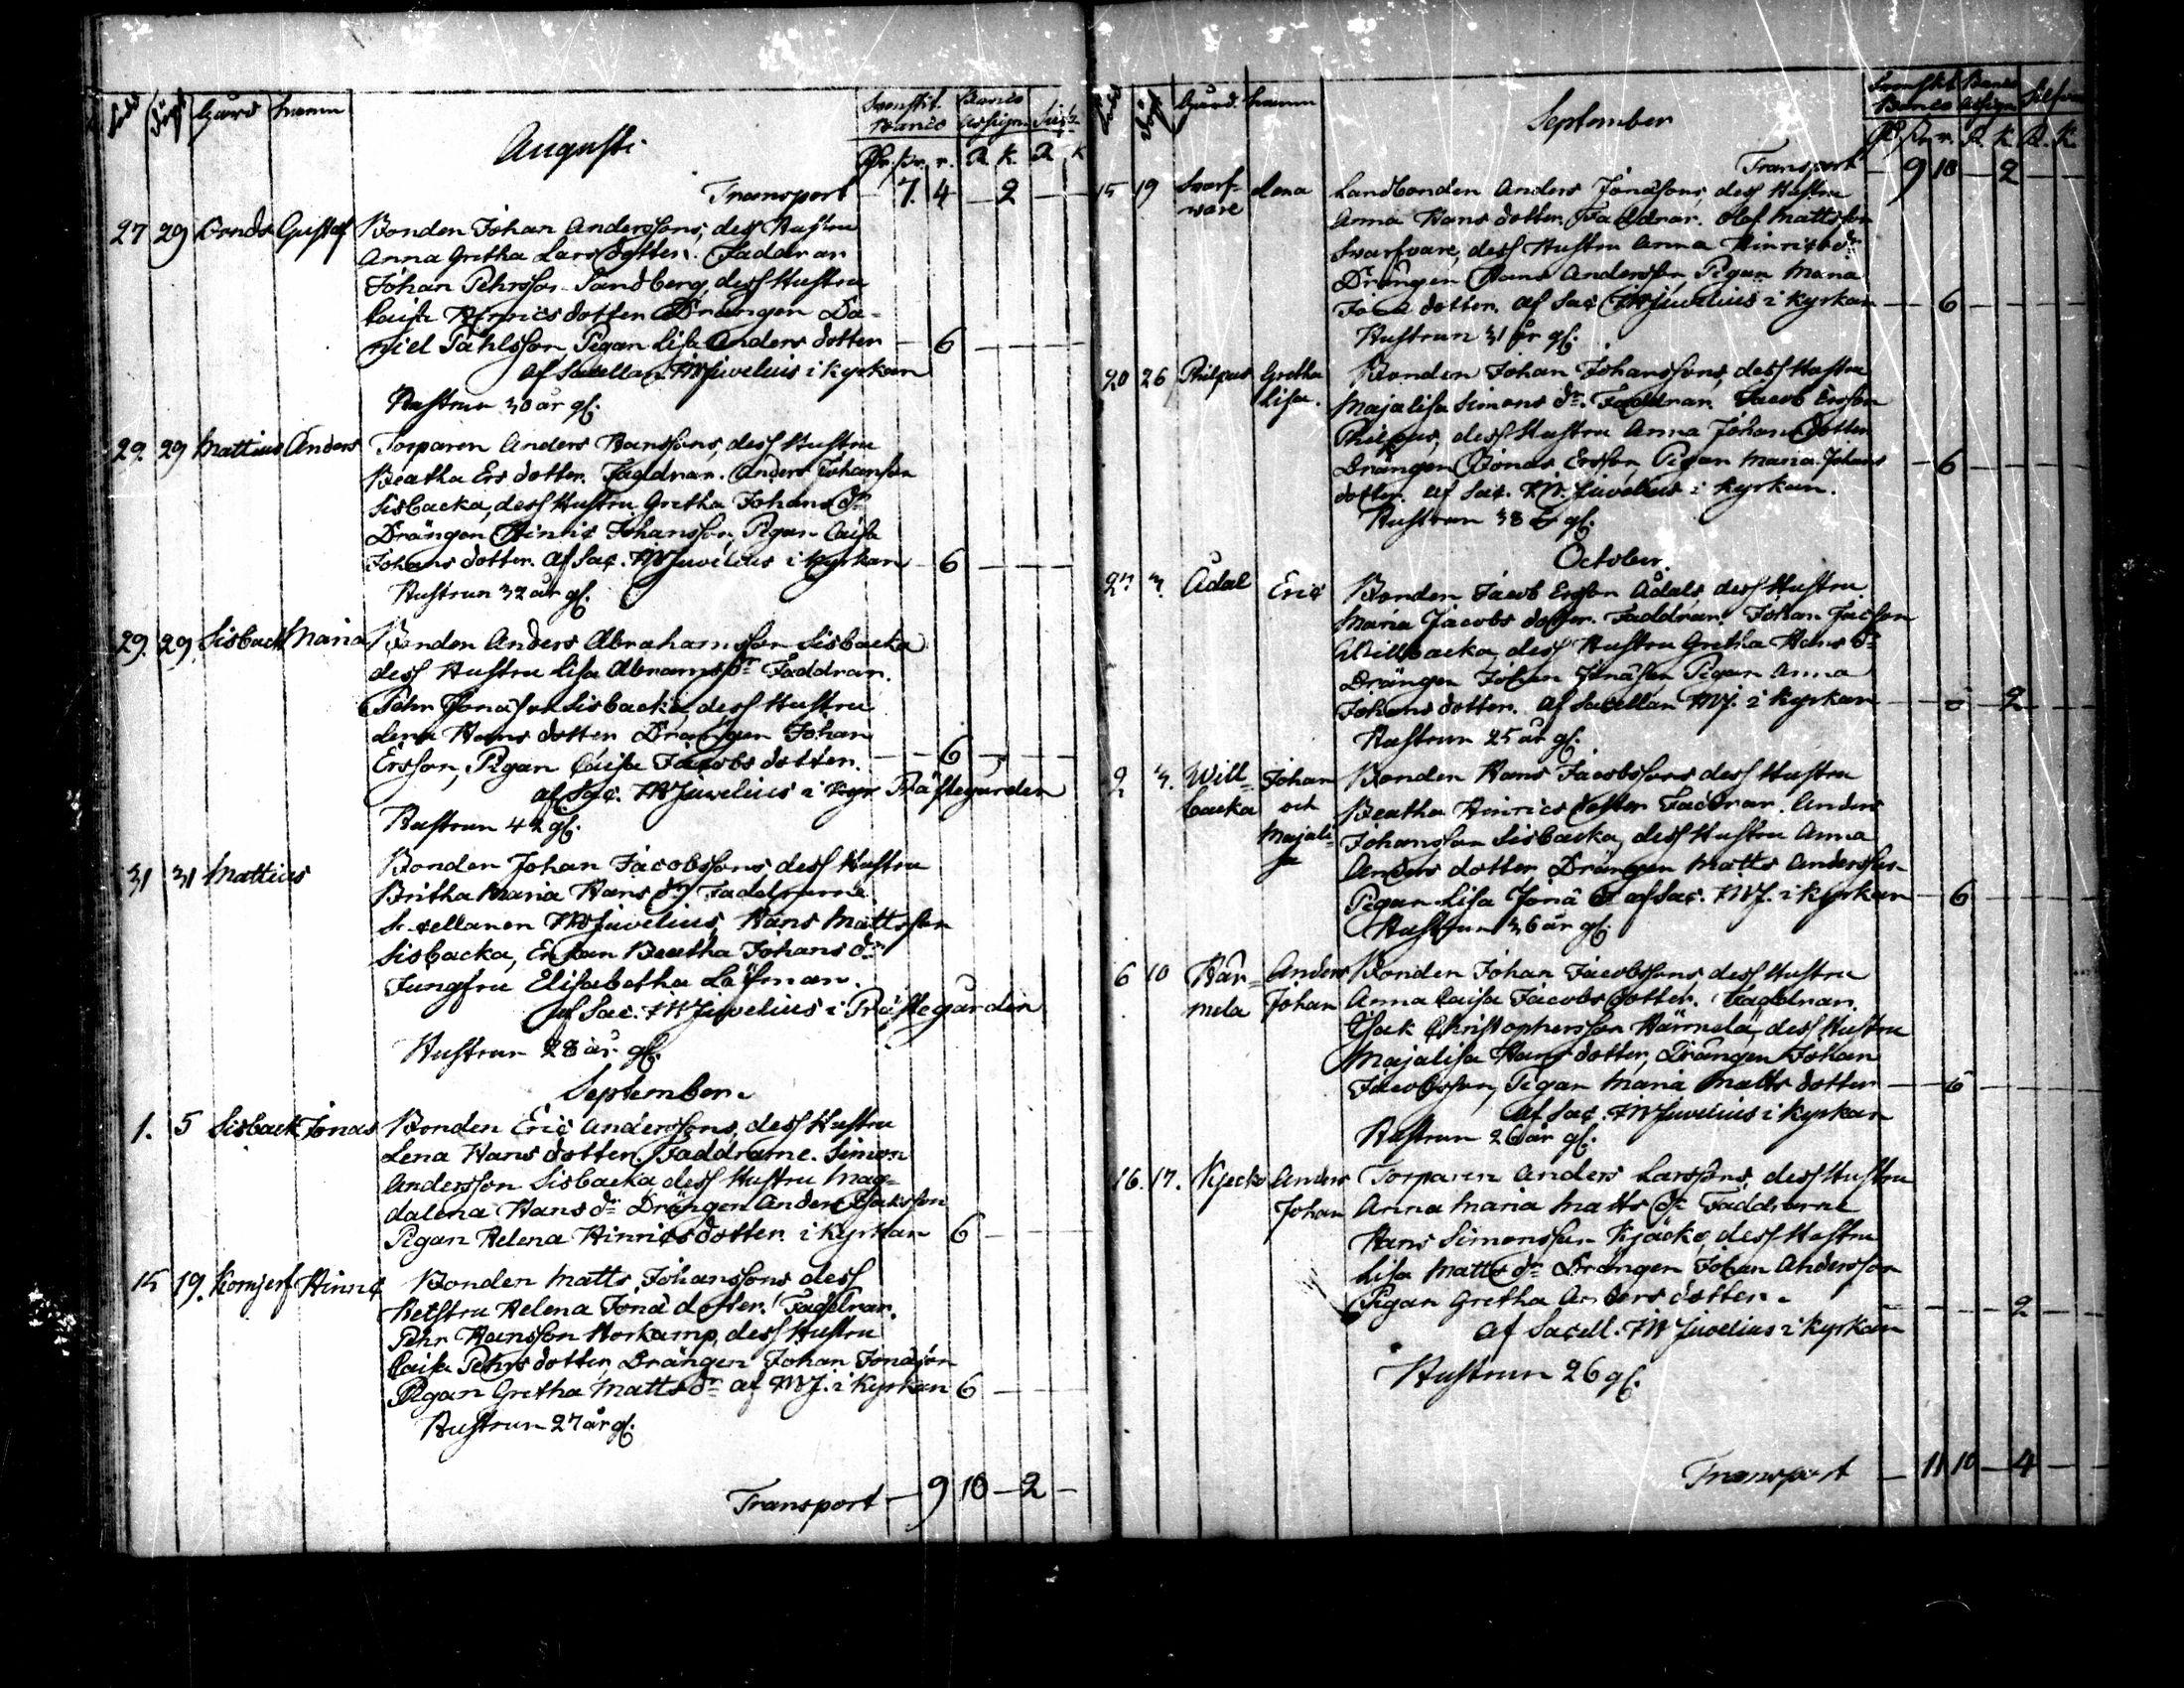 Född Döpt Gård Namn Svenskt. Banco
Banco Assign. Silf.
Augusti
Rdr. sk. r. R. k. R. k
Transport — 7. 4 — 2 —
27 29 Bonds Gustaf Bonden Johan Anderssons, dess Hustru
Anna Gretha Larsdotter. Faddrar
Johan Pehrsson Sandberg, dess Hustru
Caisa Henricsdotter Drängen Da-
niel Påhlsson, Pigan Lisa Anders dotter — 6 —
af Sacellan. MWJuvelius i kyrkan
Hustrun 30 år gl.
29. 29 Mattius Anders Torparen Anders Hanssons, dess Hustru
Beatha Ers dotter. Faddrar. Anders Johansson
Sisbacka, dess Hustru Gretha Johans dr
Drängen Hinric Johansson, Pigan Caisa
Johans dotter. af Sac. MWJuvelius i kyrkan — 6 —
Hustrun 32 år gl.
29. 29. Sisback Maria Bonden Anders Abrahamsson Sisbacka
dess Hustru Lisa Abrams dr Faddrar.
Pehr Jonasson Sisbacka, dess Hustru
Lena Hans dotter Drängen Johan
Ersson, Pigan Caisa Jacobs dotter. — 6 —
af Sac. MWJuvelius i kyr Prästegården
Hustrun 42 gl.
31 31 Mattius Bonden Johan Jacobssons, dess Hustru
Britha Maria Hans dr Faddrarne
Sacellanen MWJuvelius, Hans Mattsson
Sisbacka, Enkan Beatha Johans dr
Jungfru Elisabetha Löfman.
af Sac. MWJuvelius i Prästegården
Hustrun 28 år gl.
September.
1. 5 Sisback Jonas Bonden Eric Anderssons, dess Hustru
Lena Hans dotter. Faddrarne. Simon
Andersson Sisbacka dess Hustru Mag-
dalena Hans dr Drängen Anders Isaksson
Pigan Helena Hinricsdotter i kyrkan 6 —
15 19. Komjerf Hinric Bonden Matts Johanssons dess
Hustru Helena Jonä dotter. Faddrar.
Pehr Hansson Storkamp, dess Hustru
Caisa Pehrs dotter, Drängen Johan Jonäson
Pigan Gretha Matts dr af MWJ. i kyrkan 6 —
Hustrun 27 år gl.
Transport — 9 10 — 2 —
Född Döpt Gård. Namn Svenskt Banco
Banco Assign Silfver
September
Transport — 9 10 — 2 — —
15 19 Svarf- Lena Landbonden Anders Jonäsons, dess Hustru
vare Anna Hans dotter. Faddrar. Olof Mattsson
Svarfvare, dess Hustru Anna Hinrics dr
Drängen Hans Andersson, Pigan Maria
dotter. af Sac MWJuvelius i kyrkan — 6 —
Hustrun 31 år gl.
20 26 Philpus Gretha Bonden Johan Johanssons, dess Hustru
Lisa. Majalisa Simons dr. Faddrar. Jacob Ersson
Philpus, dess Hustru Anna Johans dotter
Drängen Jonas Ersson Pigan Maria Johans — 6 —
dotter. af Sac. MW. Juvelius i kyrkan.
Hustrun 38 år gl.
October.
3. Ådal Eric Bonden Jacob Ersson Ådals, dess Hustru
Maria Jacobs dotter. Faddrar. Johan Jacsson
Willbacka, dess Hustru Gretha Hans dr
Drängen Johan Jonäson Pigan Anna
Johans dotter. af Sacellan MWJ. i kyrkan — — 2
Hustrun 25 år gl.
2 3. Will- Johan Bonden Hans Jacobssons dess Hustru
backa och Beatha Hinrics dotter Faddrar. Anders
Majali- Johansson Sisbacka, dess Hustru Anna
sa Anders dotter, Drängen Matts Andersson
Pigan Lisa Jonä dr af Sac. MWJ. i kyrkan — 6 —
Hustrun 36 år gl.
6 10 Här- Anders Bonden Johan Jacobssons, dess Hustru
mela Johan Anna Caisa Jacobs dotter. Faddrar.
Isak Christophersson Härmälä, dess Hustru
Majalisa Hans dotter, Drängen Johan
Jacobsson, Pigan Maria Matts dotter — 6 —
af Sac. MWJuvelius i kyrkan
Hustrun 26 år gl.
16. 17. Kjecko Anders Torparen Anders Larssons, dess Hustru
Johan Anna Maria Matts dr Faddrarne
Hans Simonsson Kjäcko, dess Hustru
Lisa Matts dr Drängen Johan Andersson
Pigan Gretha Anders dotter. — — 2
af Sacell. MWJuvelius i kyrkan
Hustrun 26 gl.
Transport — 11 10 — 4 —